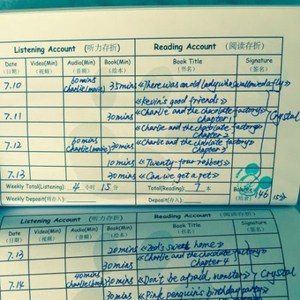 Listening Account (听力存折) Reading Account (阅读存折)
Date Video(Min) Audio(Min) Book(Min) Book Title Signature
(日期) (视频) (音频) (绘本) (书名) (签名)
7.10 60mins Charlie(movie) 35mins «There was an old lady who swallowed a fly»
«Kevin's good friends»
7.11 30mins «Charlie and the chocolate factory» Chapter 1 Crystal
«Charlie and the chocolate factory» Chapter 2
7.12 60mins Charlie(movie) 30mins «Charlie and the chocolate factory» Chapter 3
10mins «Twenty-four robbers»
7.13 30mins «Can we get a pet»
Weekly Total(Listening): 4 小时 15 分 Total(Reading): 7 本
Weekly Deposit(存入): Deposit(存入):
Listening Account (听力存折) Reading Account (阅读存折)
Date Video(Min) Audio(Min) Book(Min) Book Title Signature
(日期) (视频) (音频) (绘本) (书名) (签名)
7.13 20mins sweet home»
30mins «Charlie and the chocolate factory» Chapter 4
7.14 40mins 30mins «Don't be afraid monster» Crystal
30mins «Pink penguin's birthday party»